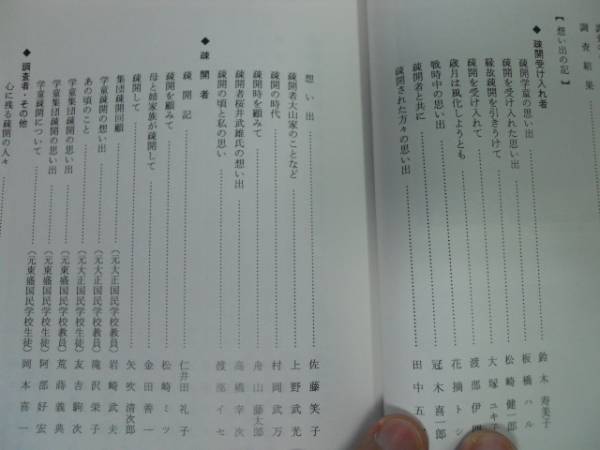 調査結果
【想い出の記】
◆疎開受け入れ者
疎開学童の思い出……鈴木寿美子
疎開を受け入れた思い出……板橋ハル
縁故疎開を引きうけて……松崎健一郎
疎開を受け入れて……大塚ユキ子
歳月は風化しようとも……渡部伊四
戦時中の思い出……花摘トシ
疎開者と共に……冠木喜一郎
疎開された方々の思い出……田中五
想い出……佐藤笑子
疎開者大山家のことなど……上野武光
疎開の時代……村岡武万
疎開時を顧みて……舟山藤太郎
疎開者桜井武雄氏の想い出……高橋幸次
疎開の頃と私の思い……渡部イセ
◆疎開者
疎開記……仁井田礼子
疎開を顧みて……松崎ミツ
母と娘家族が疎開して……金田善一
疎開して……矢吹清次郎
集団疎開回顧……(元大正国民学校教員)岩崎武夫
学童疎開の想い出……(元大正国民学校教員)滝沢栄子
あの頃のこと……(元大正国民学校生徒)友吉駒次
学童集団疎開の思い出……(元東盛国民学校教員)荒蒔義典
学童集団疎開の思い出……(元東盛国民学校生徒)阿部好宏
学童疎開について……(元東盛国民学校生徒)岡本喜一
◆調査者・その他
心に残る疎開の人々